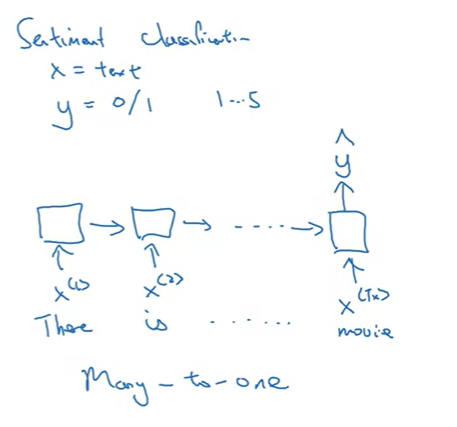 Sentiment classification
x = text
y = 0/1 1...5
ŷ
x<1> x<2> x<Tx>
There is ....... movie
Many-to-one